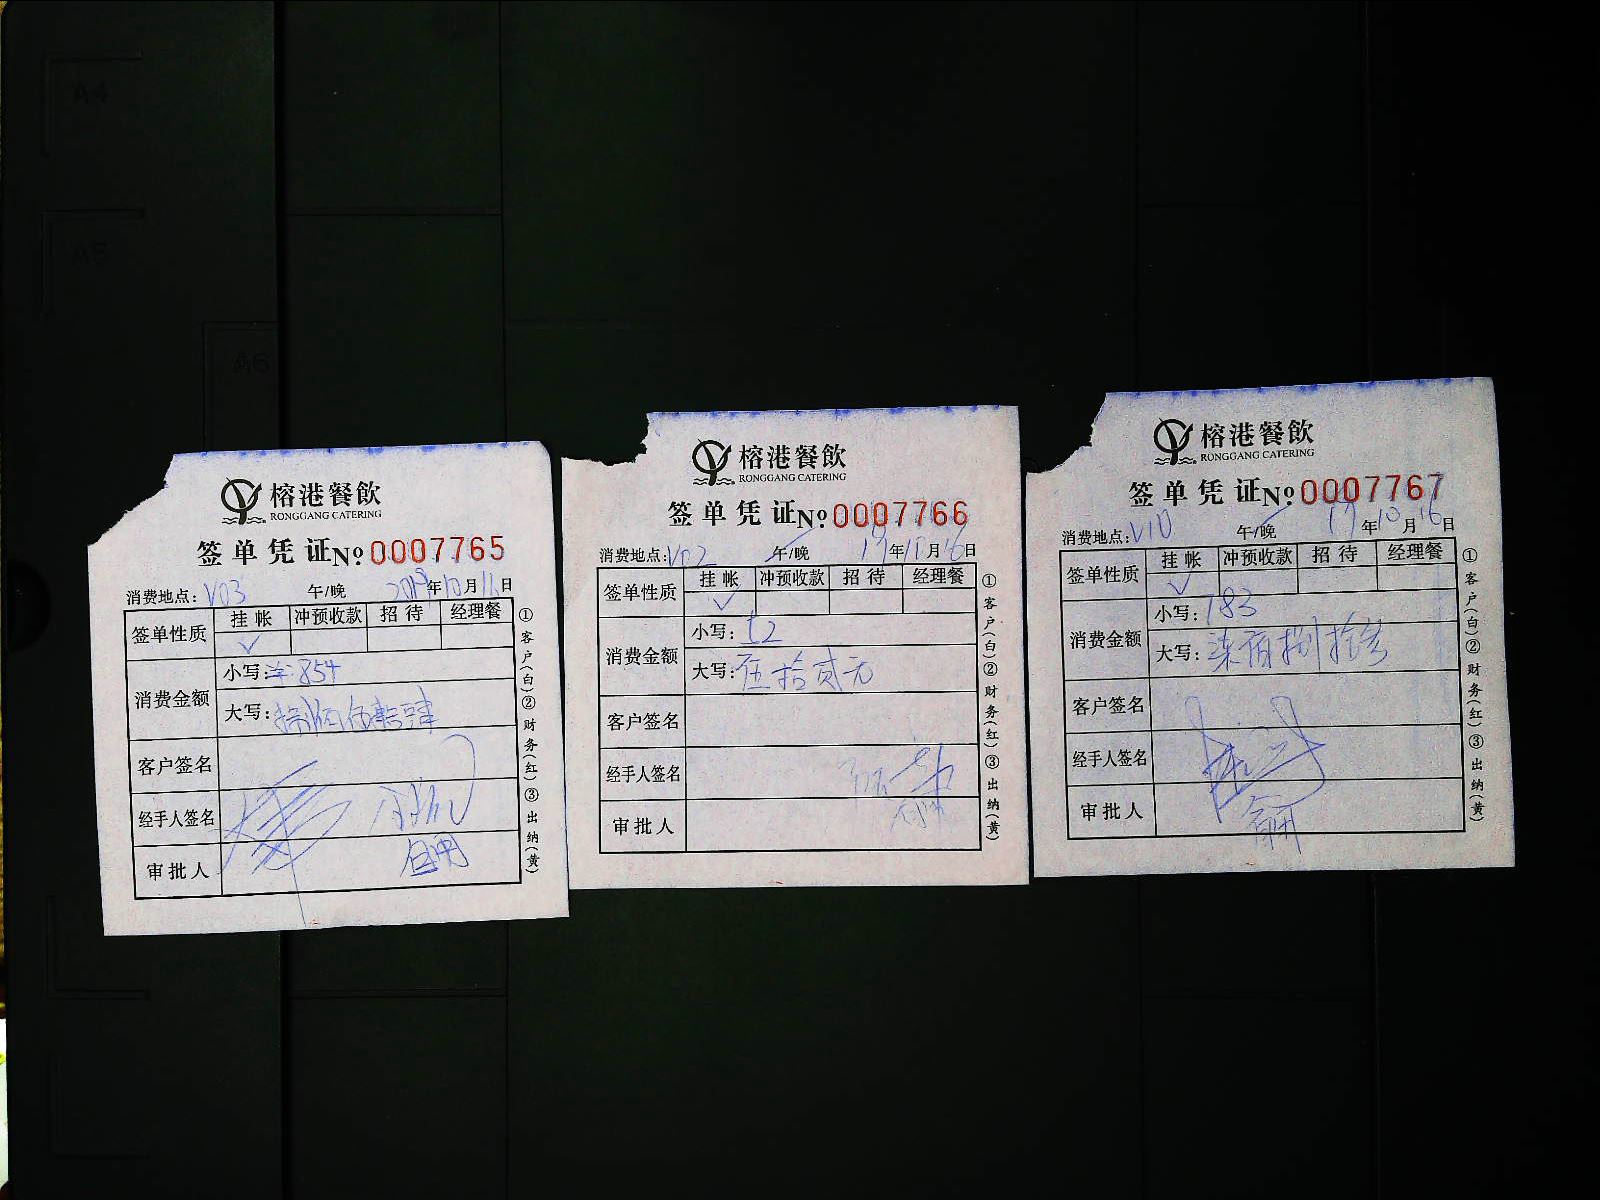 A4
A5
A6
榕港餐飲
RONGGANG CATERING
签单凭证№0007765
消费地点：V03 午/晚 2019年10月16日
签单性质 挂帐 冲预收款 招待 经理餐
✓
消费金额
小写：854
大写：捌佰伍拾肆
客户签名
经手人签名
审批人
①客户(白)②财务(红)③出纳(黄)
榕港餐飲
RONGGANG CATERING
签单凭证№0007766
消费地点：V02 午/晚 19年10月16日
签单性质 挂帐 冲预收款 招待 经理餐
✓
消费金额
小写：52
大写：伍拾贰元
客户签名
经手人签名
审批人
①客户(白)②财务(红)③出纳(黄)
榕港餐飲
RONGGANG CATERING
签单凭证№0007767
消费地点：V10 午/晚 19年10月16日
签单性质 挂帐 冲预收款 招待 经理餐
✓
消费金额
小写：783
大写：柒佰捌拾叁
客户签名
经手人签名
审批人
①客户(白)②财务(红)③出纳(黄)